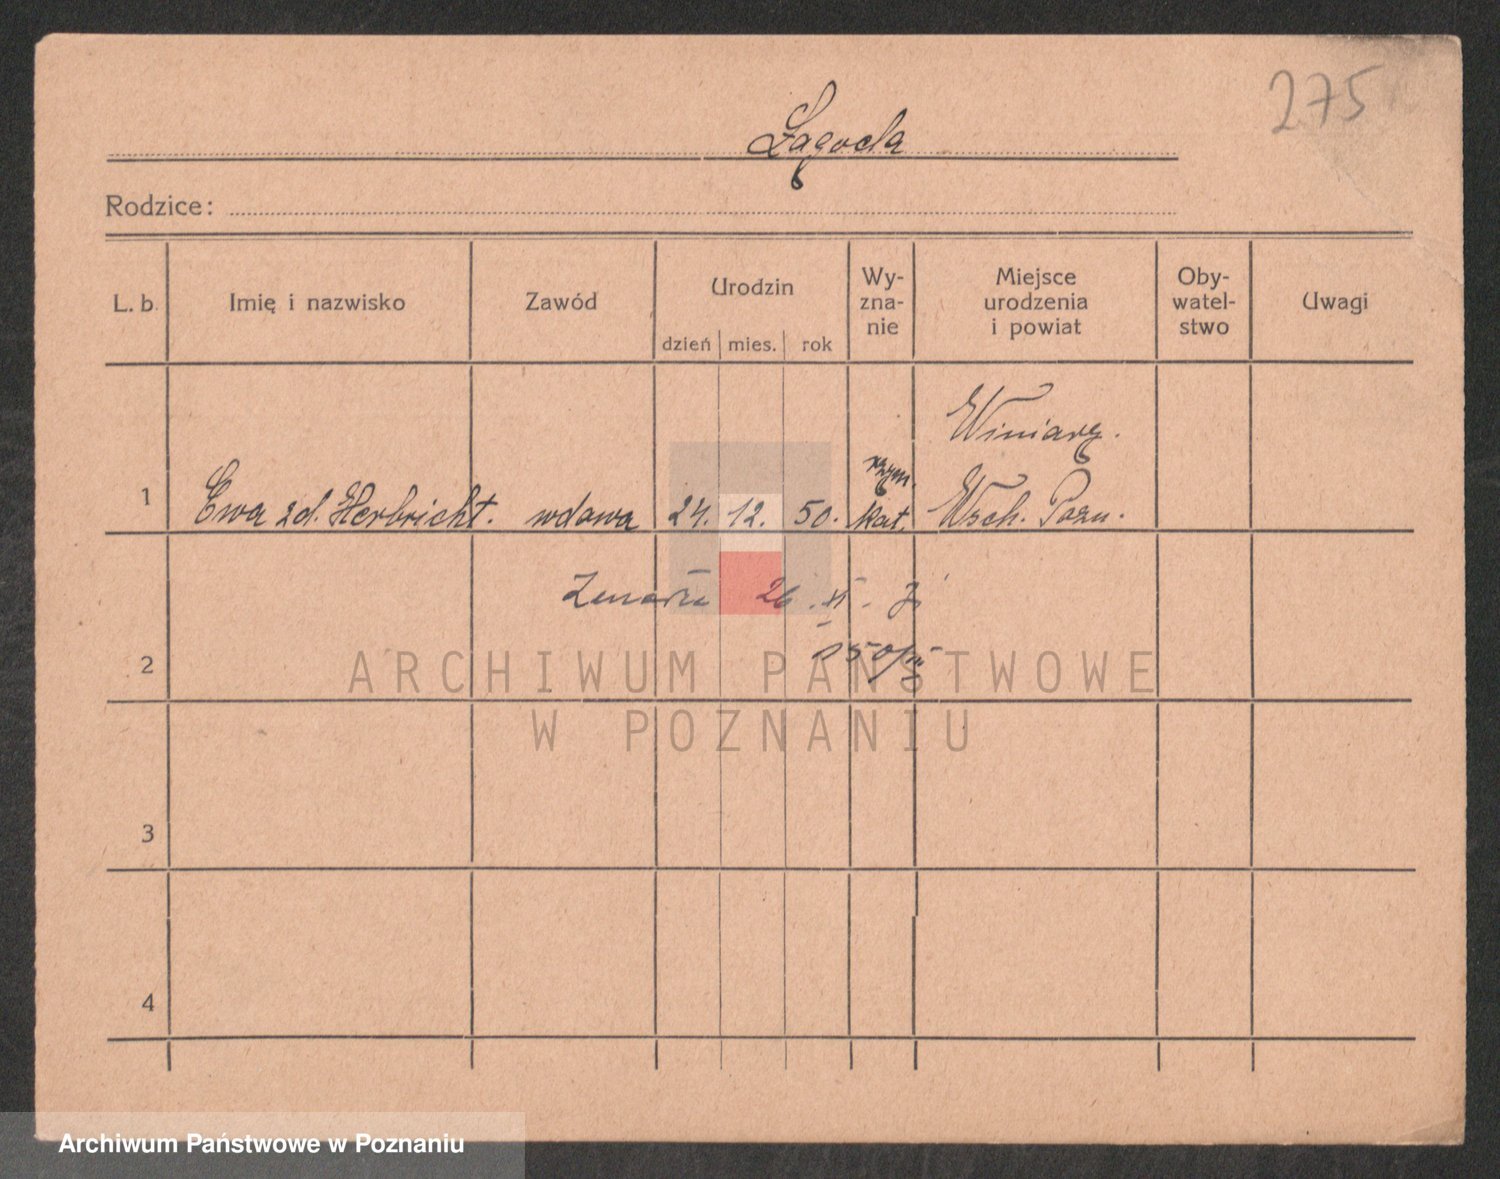 275
Łagoda
Rodzice:
L. b.
Imię i nazwisko
Zawód
Urodzin
dzień mies. rok
Wy-
zna-
nie
Miejsce
urodzenia
i powiat
Oby-
watel-
stwo
Uwagi
Winiary.
rzym.
1 Ewa zd. Herbricht. wdowa 24. 12. 50. kat. Wsch. Pozn.
Zmarła 26. XI.
2
ARCHIWUM PAŃSTWOWE
W POZNANIU
3
4
Archiwum Państwowe w Poznaniu